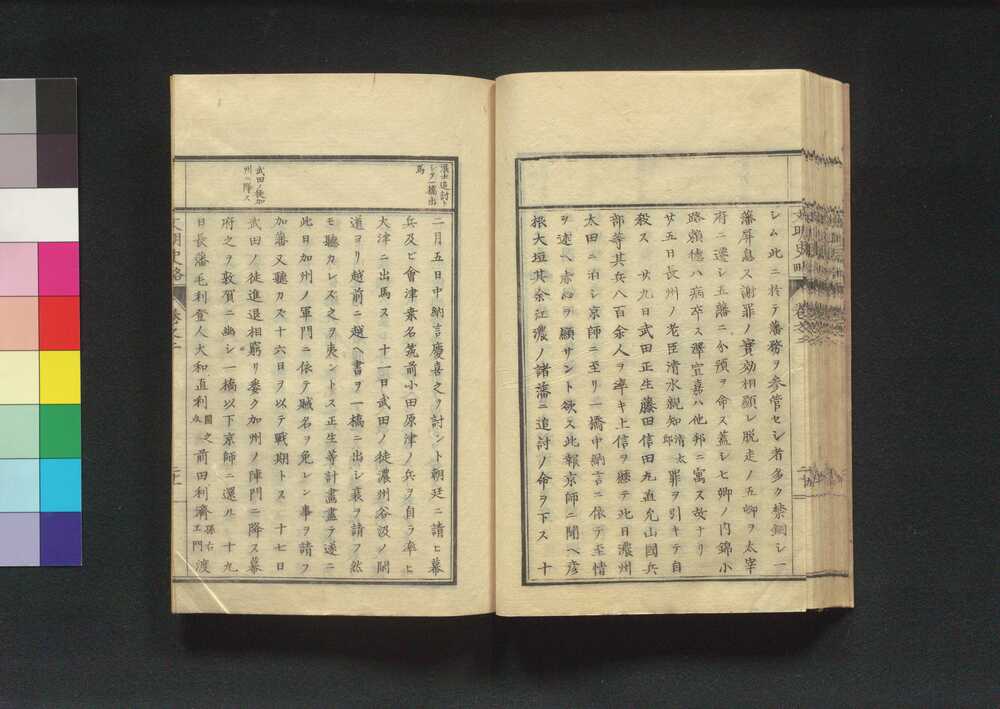 シム此ニ於テ藩務ヲ参管セシ者多ク禁錮シ一
藩屏息ス謝罪ノ實効相顕レ脱走ノ五卿ヲ太宰
府ニ遷シ五藩ニ分預ヲ命ス蓋シ七卿ノ内錦小
路頼徳ハ病卒ス澤宣嘉ハ他邦ニ寓ス故ナリ
廿五日長州ノ老臣清水親知清太郎罪ヲ引キテ自
殺ス 廿九日武田正生藤田信田丸直允山國兵
部等其兵八百余人ヲ率キ上信ヲ歴テ此日濃州
太田ニ泊シ京師ニ至リ一橋中納言ニ依テ至情
ヲ述ヘ赤心ヲ顕サント欲ス此報京師ニ聞ヘ彦
根大垣其余江濃ノ諸藩ニ追討ノ命ヲ下ス 十
文明史略 巻之二
浪士追討トシテ一橋出馬
二月五日中納言慶喜之ヲ討ント朝廷ニ請ヒ幕
兵及ヒ會津桒名筑前小田原津ノ兵ヲ自ラ率ヒ
大津ニ出馬ス 十一日武田ノ徒濃州谷汲ノ関
道ヨリ越前ニ越ヘ書ヲ一橋ニ出シ哀ヲ請フ然
モ聴カレス之ヲ夾ントス正生等計畫盡テ遂ニ
此日加州ノ軍門ニ依テ賊名ヲ免レン事ヲ請フ
武田ノ徒加州ヘ降ス
加藩又聴カズ十六日ヲ以テ戰期トス 十七日
武田ノ徒進退相窮リ悉ク加州ノ陣門ニ降ス幕
府之ヲ敦賀ニ幽シ一橋以下京師ニ還ル 十九
日長藩毛利登人大和直利國之 前田利濟孫右エ門渡
文明史略 巻之二